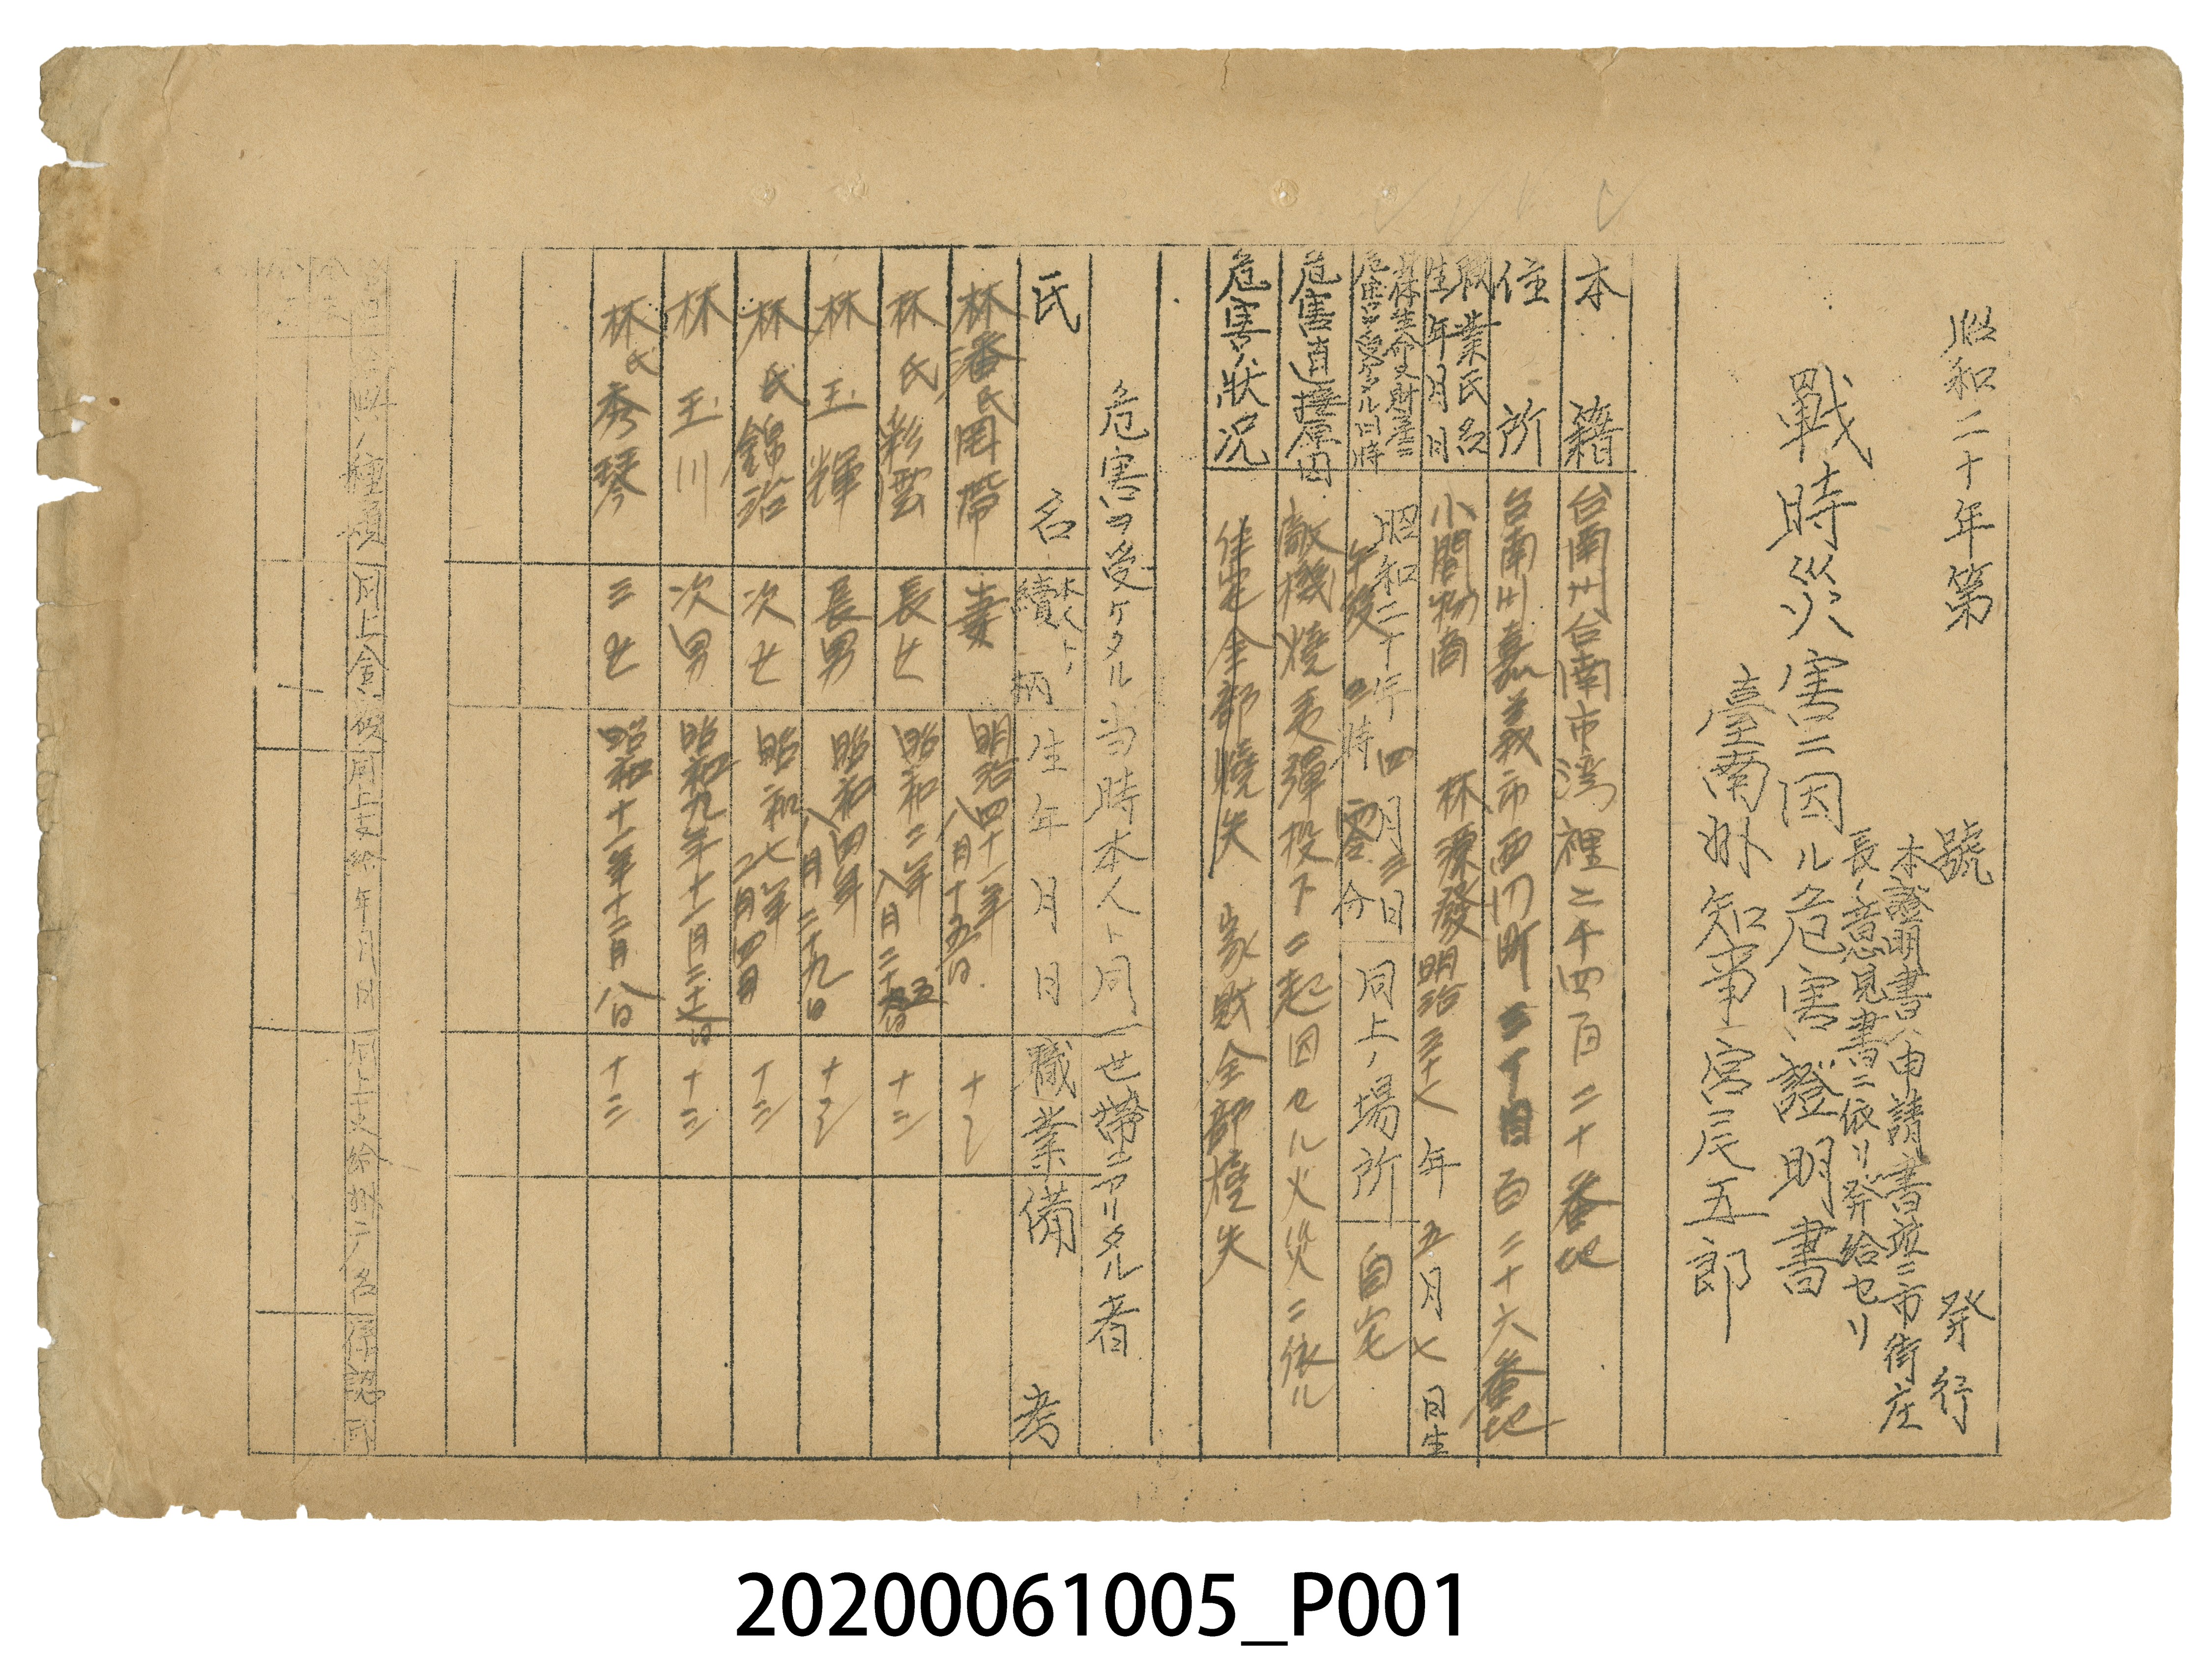 昭和二十年第　號　發行
本證明書ハ申請書竝ニ市街庄
長ノ意見書ニ依リ發給セリ
戰時災害ニ因ル危害證明書
臺南州知事宮尾五郎
本籍　台南州台南市湾裡二千四百二十番地
住所　台南州嘉義市西門町三丁目百二十六番地
職業氏名
生年月日　小間物商　林源發　明治三十七年五月七日生
身体生命又財産ニ
危害ヲ受ケタル日時　昭和二十年四月三日
午後　時零分　同上ノ場所　自宅
危害直接原因　敵機燒夷彈投下ニ起因セル火災ニ依ル
危害ノ狀況　住宅全部燒失　家財全部燒失
危害ヲ受ケタル当時本人ト同一世帶ニアリタル者
氏名　本人トノ續柄　生年月日　職業　備考
林潘氏罔帶　妻　明治四十一年八月十五日
林氏彩雲　長女　昭和二年八月二十五日　十三
林玉輝　長男　昭和四年八月二十九日
林氏錦治　次女　昭和七年二月四日　十三
林玉川　次男　昭和九年十一月二十七日　十三
林氏秀琴　三女　昭和十一年十二月八日　十三
給與ノ種類　同上金　同上支給年月日　同上支給州廳名　承認
20200061005_P001